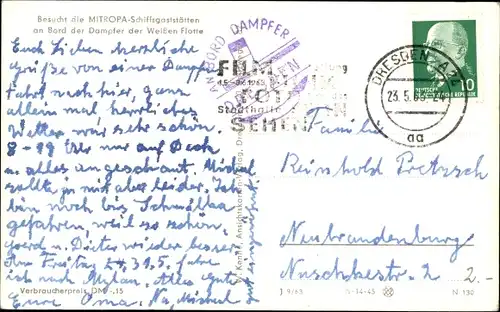 Besucht die MITROPA-Schiffsgaststätten
an Bord der Dampfer der Weißen Flotte
Euch Lieben herzliche
Grüße von einer Dampfer
fahrt nach hier, ganz
allein mal herrliches
Wetter war sehr schön.
8-19 Uhr nur auf Deck
u. alles angeschaut. Michael
sollte ja mit aber leider. Ich
bin noch bis Schmilka
gefahren, weil es so schön.
u. Dieter wieder besser
Freitag 31.5. fahre
ich nach Mylau. Alles Gute
Eure Oma. Michael
Verbraucherpreis DM -,15
AN BORD DAMPFER
FILM
FOTO
Stadthalle
SEHEN
DRESDEN A 24
23.5.63
aa
DEUTSCHE
DEMOKRATISCHE REPUBLIK
10
Familie
Reinhold Pretzsch
Neubrandenburg
Nuschkestr. 2
2.-
J 9/63
A-14-45
N 130